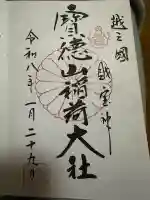 越之國
鎮霊神
寳徳山稲荷大社
令和八年一月二十九日